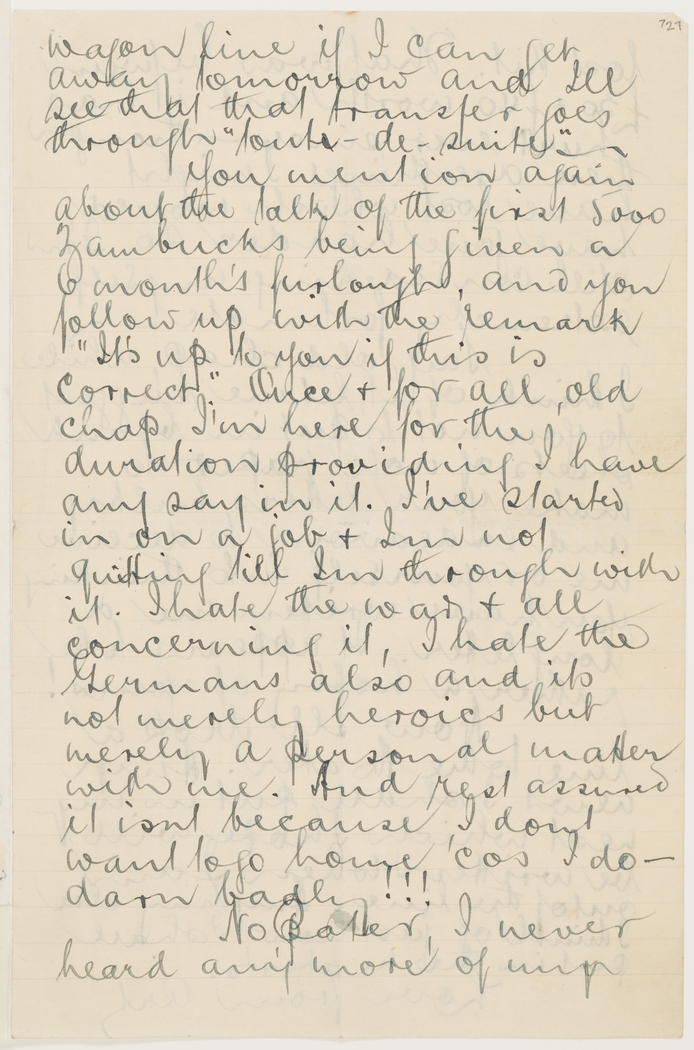 727
wagon line if I can get
away tomorrow and I'll
see that that transfer goes
through "toute-de-suite".—
You mention again
about the talk of the first 5000
Zambucks being given a
6 month's furlough, and you
follow up with the remark
"It's up to you if this is
correct." Once + for all, old
chap I'm here for the
duration providing I have
any say in it. I've started
in on a job + I'm not
quitting till I'm through with
it. I hate the war + all
concerning it, I hate the
Germans also and its
not merely heroics but
merely a personal matter
with me. And rest assured
it isnt because I don't
want to go home 'cos I do—
darn badly!!!
No Pater, I never
heard any more of my